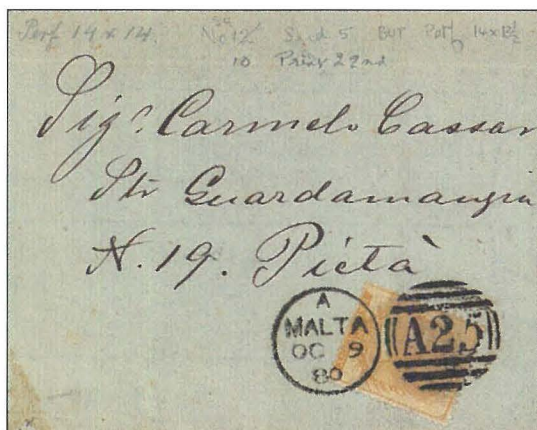 Perf 14 x 14. No 12 5 BUT Perf 14x13½
10 Prior 22nd
Sigr. Carmelo Cassar
Str Guardamangia
N. 19. Pietà
A
MALTA
OC 9
80
A25